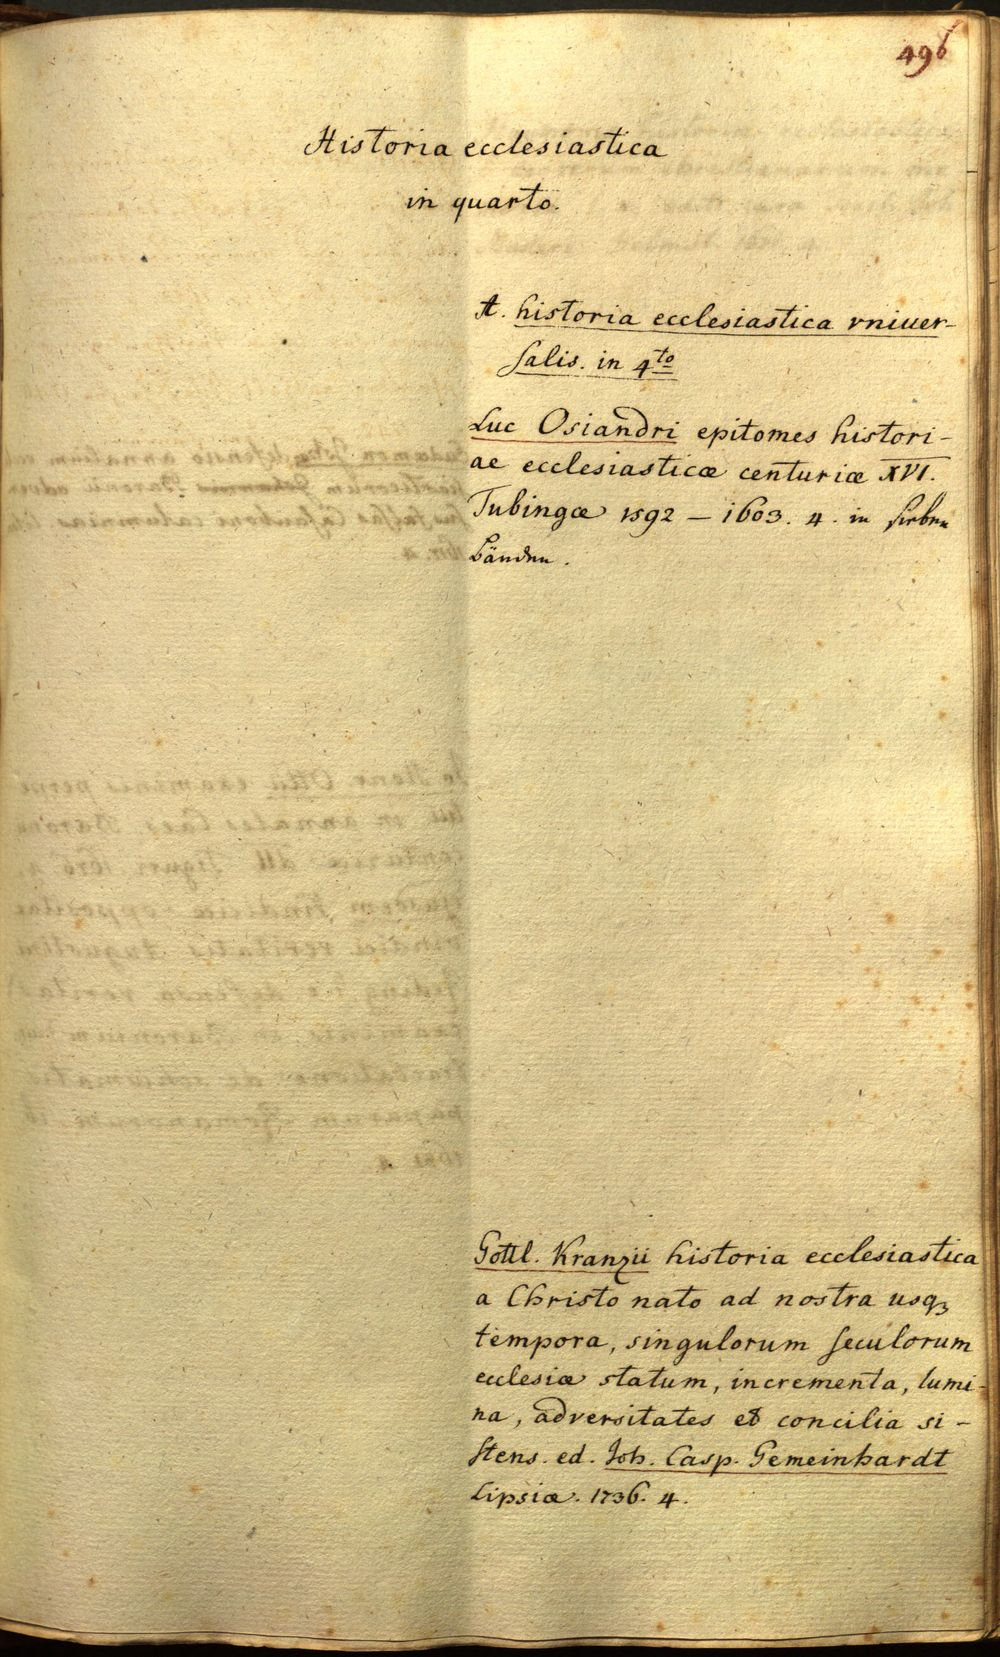 496
Historia ecclesiastica
in quarto.
A. historia ecclesiastica vniuer-
salis. in 4to
Luc Osiandri epitomes histori-
ae ecclesiasticæ centuriæ XVI.
Tubingæ 1592 – 1603. 4. in sieben
Bänden.
Gottl. Kranzii historia ecclesiastica
a Christo nato ad nostra usqꝫ
tempora, singulorum seculorum
ecclesiæ statum, incrementa, lumi-
na, adversitates et concilia si-
stens. ed. Joh. Casp. Gemeinhardt
Lipsiæ. 1736. 4.